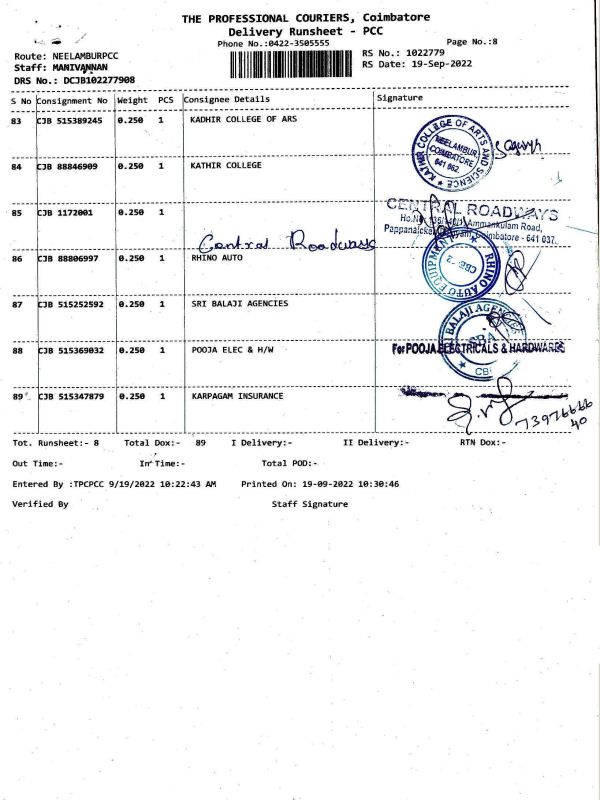 THE PROFESSIONAL COURIERS, Coimbatore
Delivery Runsheet - PCC
Phone No.:0422-3505555
Page No.:8
Route: NEELAMBURPCC
RS No.: 1022779
Staff: MANIVANNAN
RS Date: 19-Sep-2022
DRS No.: DCJB102277908
S No Consignment No Weight PCS Consignee Details Signature
83 CJB 515389245 0.250 1 KADHIR COLLEGE OF ARS
KATHIR COLLEGE OF ARTS AND SCIENCE
NEELAMBUR
COIMBATORE
641 062
84 CJB 88846909 0.250 1 KATHIR COLLEGE
85 CJB 1172001 0.250 1
CENTRAL ROADWAYS
Ammankulam Road,
Coimbatore - 641 037
Central Roadways
86 CJB 88806997 0.250 1 RHINO AUTO
RHINO AUTO EQUIPMENT
CBE
87 CJB 515252592 0.250 1 SRI BALAJI AGENCIES
BALAJI AGENCIES
88 CJB 515369032 0.250 1 POOJA ELEC & H/W
For POOJA ELECTRICALS & HARDWARES
89 CJB 515347879 0.250 1 KARPAGAM INSURANCE
7397666640
Tot. Runsheet:- 8 Total Dox:- 89 I Delivery:- II Delivery:- RTN Dox:-
Out Time:- In Time:- Total POD:-
Entered By :TPCPCC 9/19/2022 10:22:43 AM Printed On: 19-09-2022 10:30:46
Verified By Staff Signature